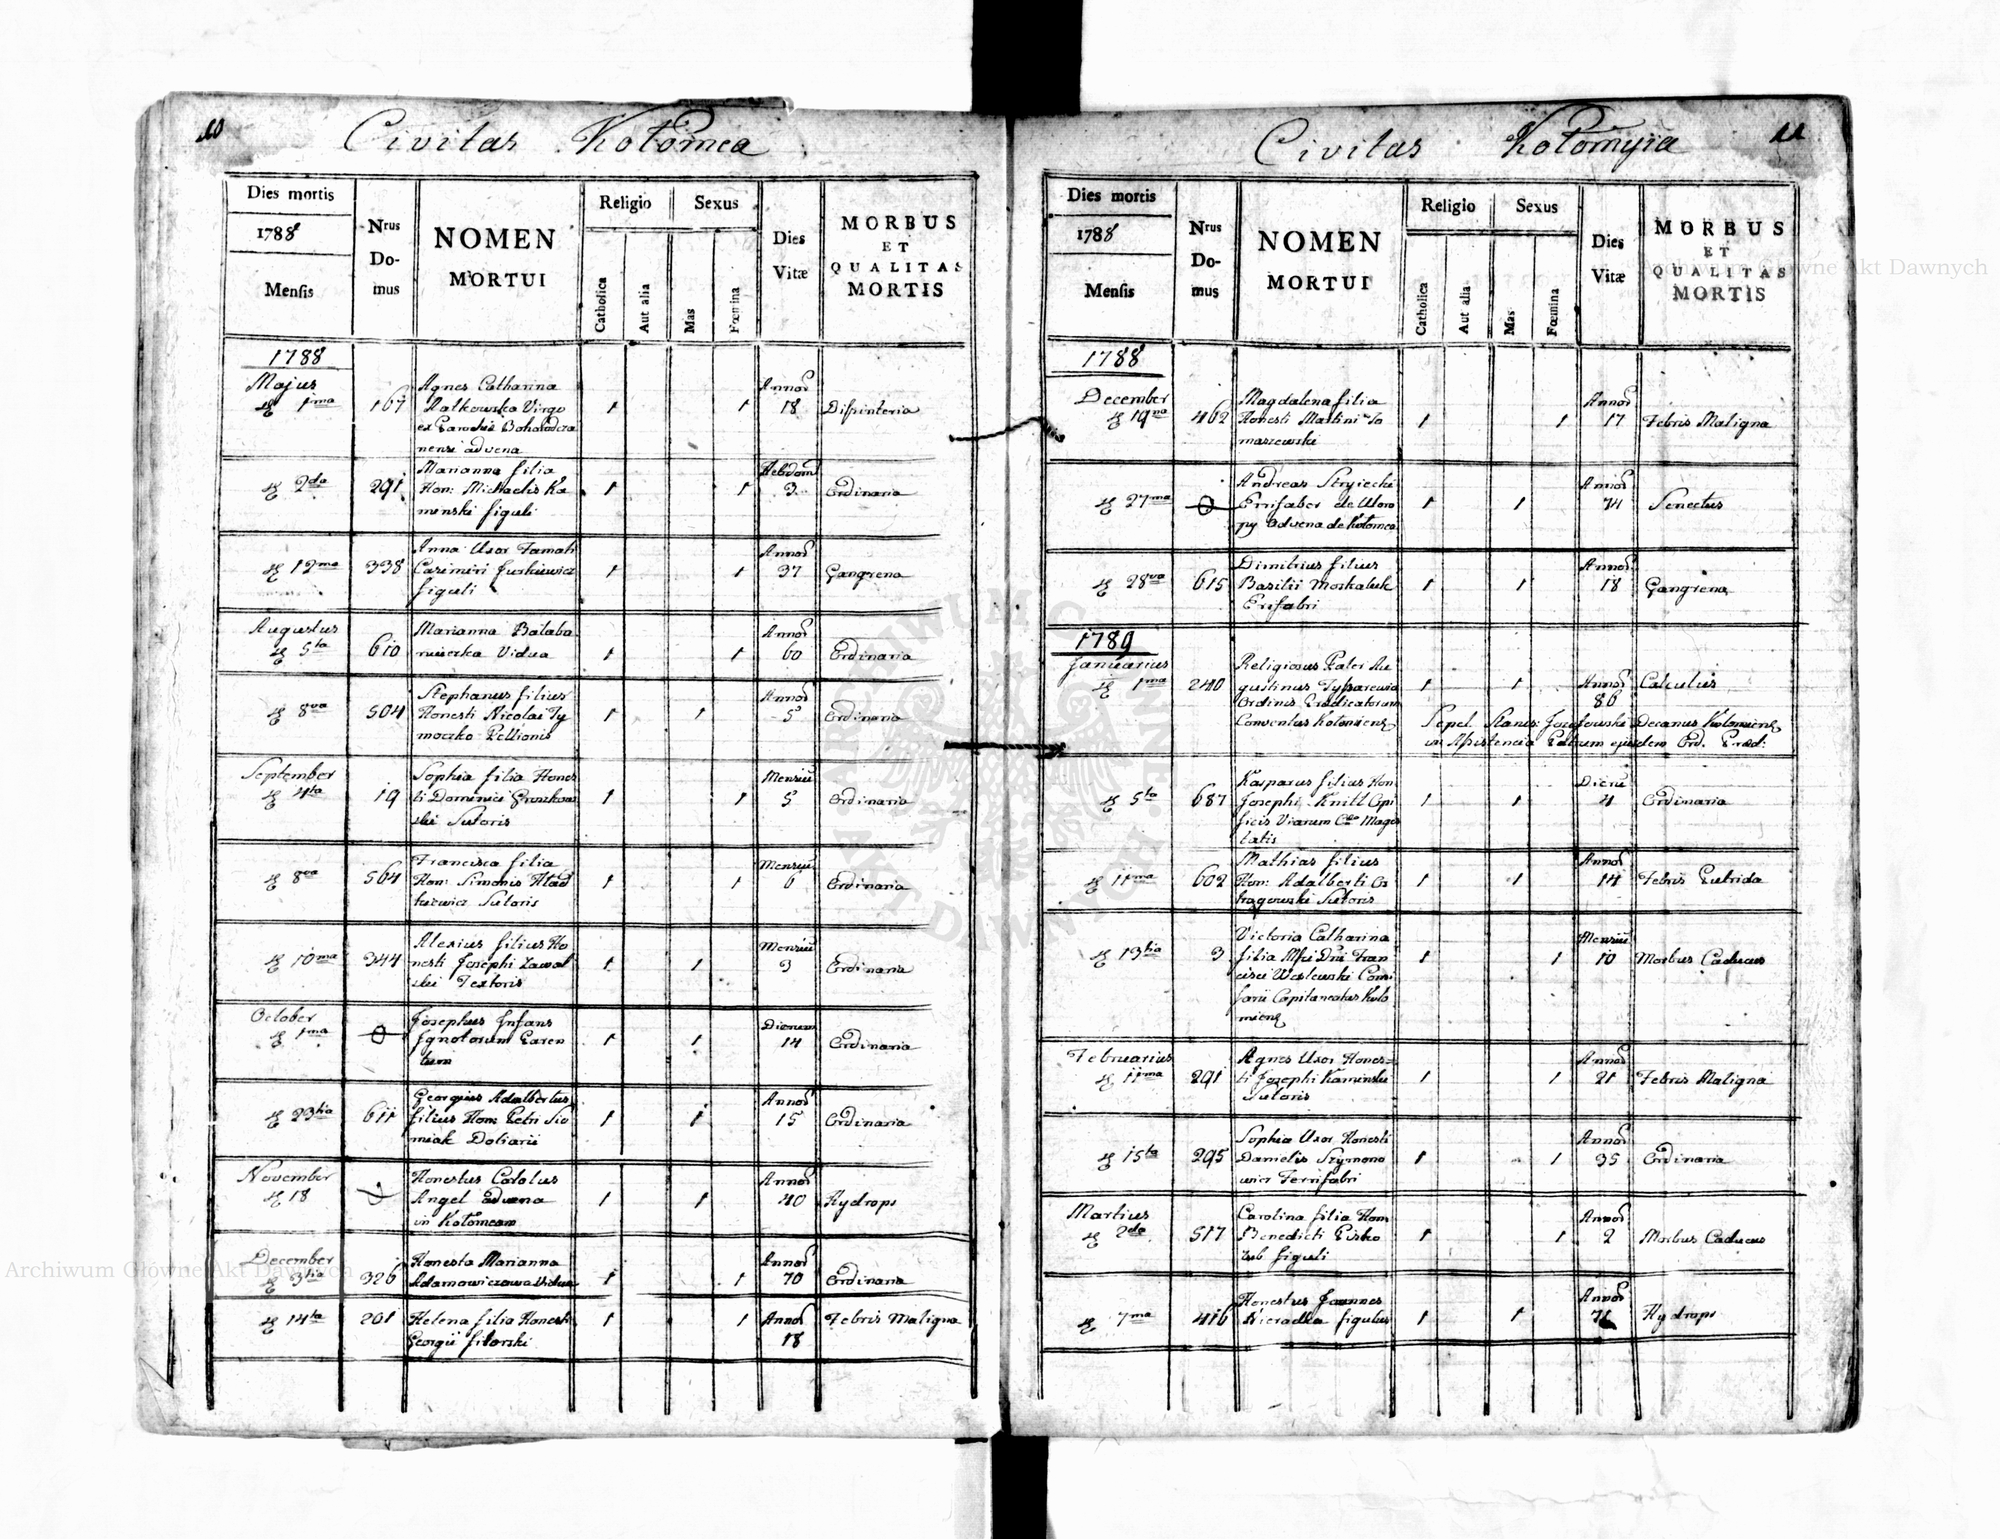 10
Civitas Kołomea
Dies mortis
1788
Mensis
Nrus
Do-
mus
NOMEN
MORTUI
Religio
Catholica
Aut alia
Sexus
Mas
Fœmina
Dies
Vitæ
MORBUS
ET
QUALITAS
MORTIS
1788
Majus
1ma
167
Agnes Catharina
Ratkowska Virgo
ex Parochia Bohorodcza
nensi advena
1 1
Annor
18
Disinteria
2da
291
Marianna filia
Hon: Michaelis Ka
menski figuli
1 1
Hebdom
3
Ordinaria
12ma
338
Anna Uxor Famati
Casimiri Jurkiewicz
figuli
1 1
Annor
37
Gangrena
Augustus
5ta
610
Marianna
Vidua
1 1
Annor
60
Ordinaria
8va
504
Stephanus filius
Honesti Nicolai Ty
moczko Pellionis
1 1
Annor
5
Ordinaria
September
4ta
19
Sophia filia Hones
ti Dominici
ski Sutoris
1 1
Mensiu
5
Ordinaria
8va
564
Francisca filia
Hon: Simonis
kiewicz Sutoris
1 1
Mensiu
6
Ordinaria
10ma
344
Alexius filius Ho
nesti Josephi Zawal
ski Textoris
1 1
Mensiu
3
Ordinaria
October
1ma
Josephus Infans
Ignotorum Paren
tum
1 1
Dierum
14
Ordinaria
23tia
611
Georgius Adalbertus
filius Hon: Petri Sio
miak Doliarii
1 1
Annor
15
Ordinaria
November
18
Honestus Carolus
Angel advena
in Kołomeam
1 1
Annor
40
Hydrops
December
3tia
326
Honesta Marianna
Adamowiczowa Vidua
1 1
Annor
70
Ordinaria
14ta
201
Helena filia Honesti
Georgii
1 1
Annor
18
Febris Maligna
11
Civitas Kołomyia
Dies mortis
1788
Mensis
Nrus
Do-
mus
NOMEN
MORTUI
Religio
Catholica
Aut alia
Sexus
Mas
Fœmina
Dies
Vitæ
MORBUS
ET
QUALITAS
MORTIS
1788
December
19na
462
Magdalena filia
Honesti Martini To
maszewski
1 1
Annor
17
Febris Maligna
27ma
Andreas Stryiecki
advena de Kołomea
1 1
Annor
74
Senectus
28va
615
Dimitrius filius
Basilii Moskaluk
1 1
Annor
18
Gangrena
1789
Januarius
1ma
240
Religiosus Pater Au
gustinus
Ordinis Predicatorum
Conventus Kołomiens
1 1
Annor
86
Calculus
Sepel Stanis: Jozefowski Decanus Kołomiens
in Assistencia Patrum ejusdem Ord. Præd:
5ta
687
Kasparus filius Hon
Josephi Knill Opi
ficis Viarum
1 1
Dieru
4
Ordinaria
11ma
602
Mathias filius
Hon: Adalberti
Sutoris
1 1
Annor
14
Febris Putrida
13tia
3
Victoria Catharina
filia Mfci Dni Fran
cisci
Capitaneatus Kolo
miens
1 1
Mensiu
10
Morbus Caducus
Februarius
11ma
291
Agnes Uxor Hones=
ti Josephi Kaminski
Sutoris
1 1
Annor
21
Febris Maligna
15ta
295
Sophia Uxor Honesti
Danielis Szymono
wicz Ferrifabri
1 1
Annor
35
Ordinaria
Martius
2da
517
Carolina filia Hon
Benedicti Pisko
zub figuli
1 1
Annor
2
Morbus Caducus
7ma
416
Honestus Joannes
Nieradka figulus
1 1
Annor
Hydrops
Archiwum Główne Akt Dawnych
Archiwum Główne Akt Dawnych
ARCHIWUM GŁÓWNE
AKT DAWNYCH